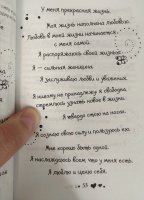 У меня прекрасная жизнь.
Моя жизнь наполнена любовью.
Любовь в моей жизни начинается
с меня самой.
Я распоряжаюсь своей жизнью.
Я — сильная женщина.
Я заслуживаю любви и уважения.
Я никому не принадлежу, я свободна.
стремлюсь узнать новое в жизни.
Я твёрдо стою на ногах.
Я сознаю свою силу и пользуюсь ею.
Мне хорошо быть одной.
Я наслаждаюсь всем, что у меня есть.
Я люблю и ценю себя.
53